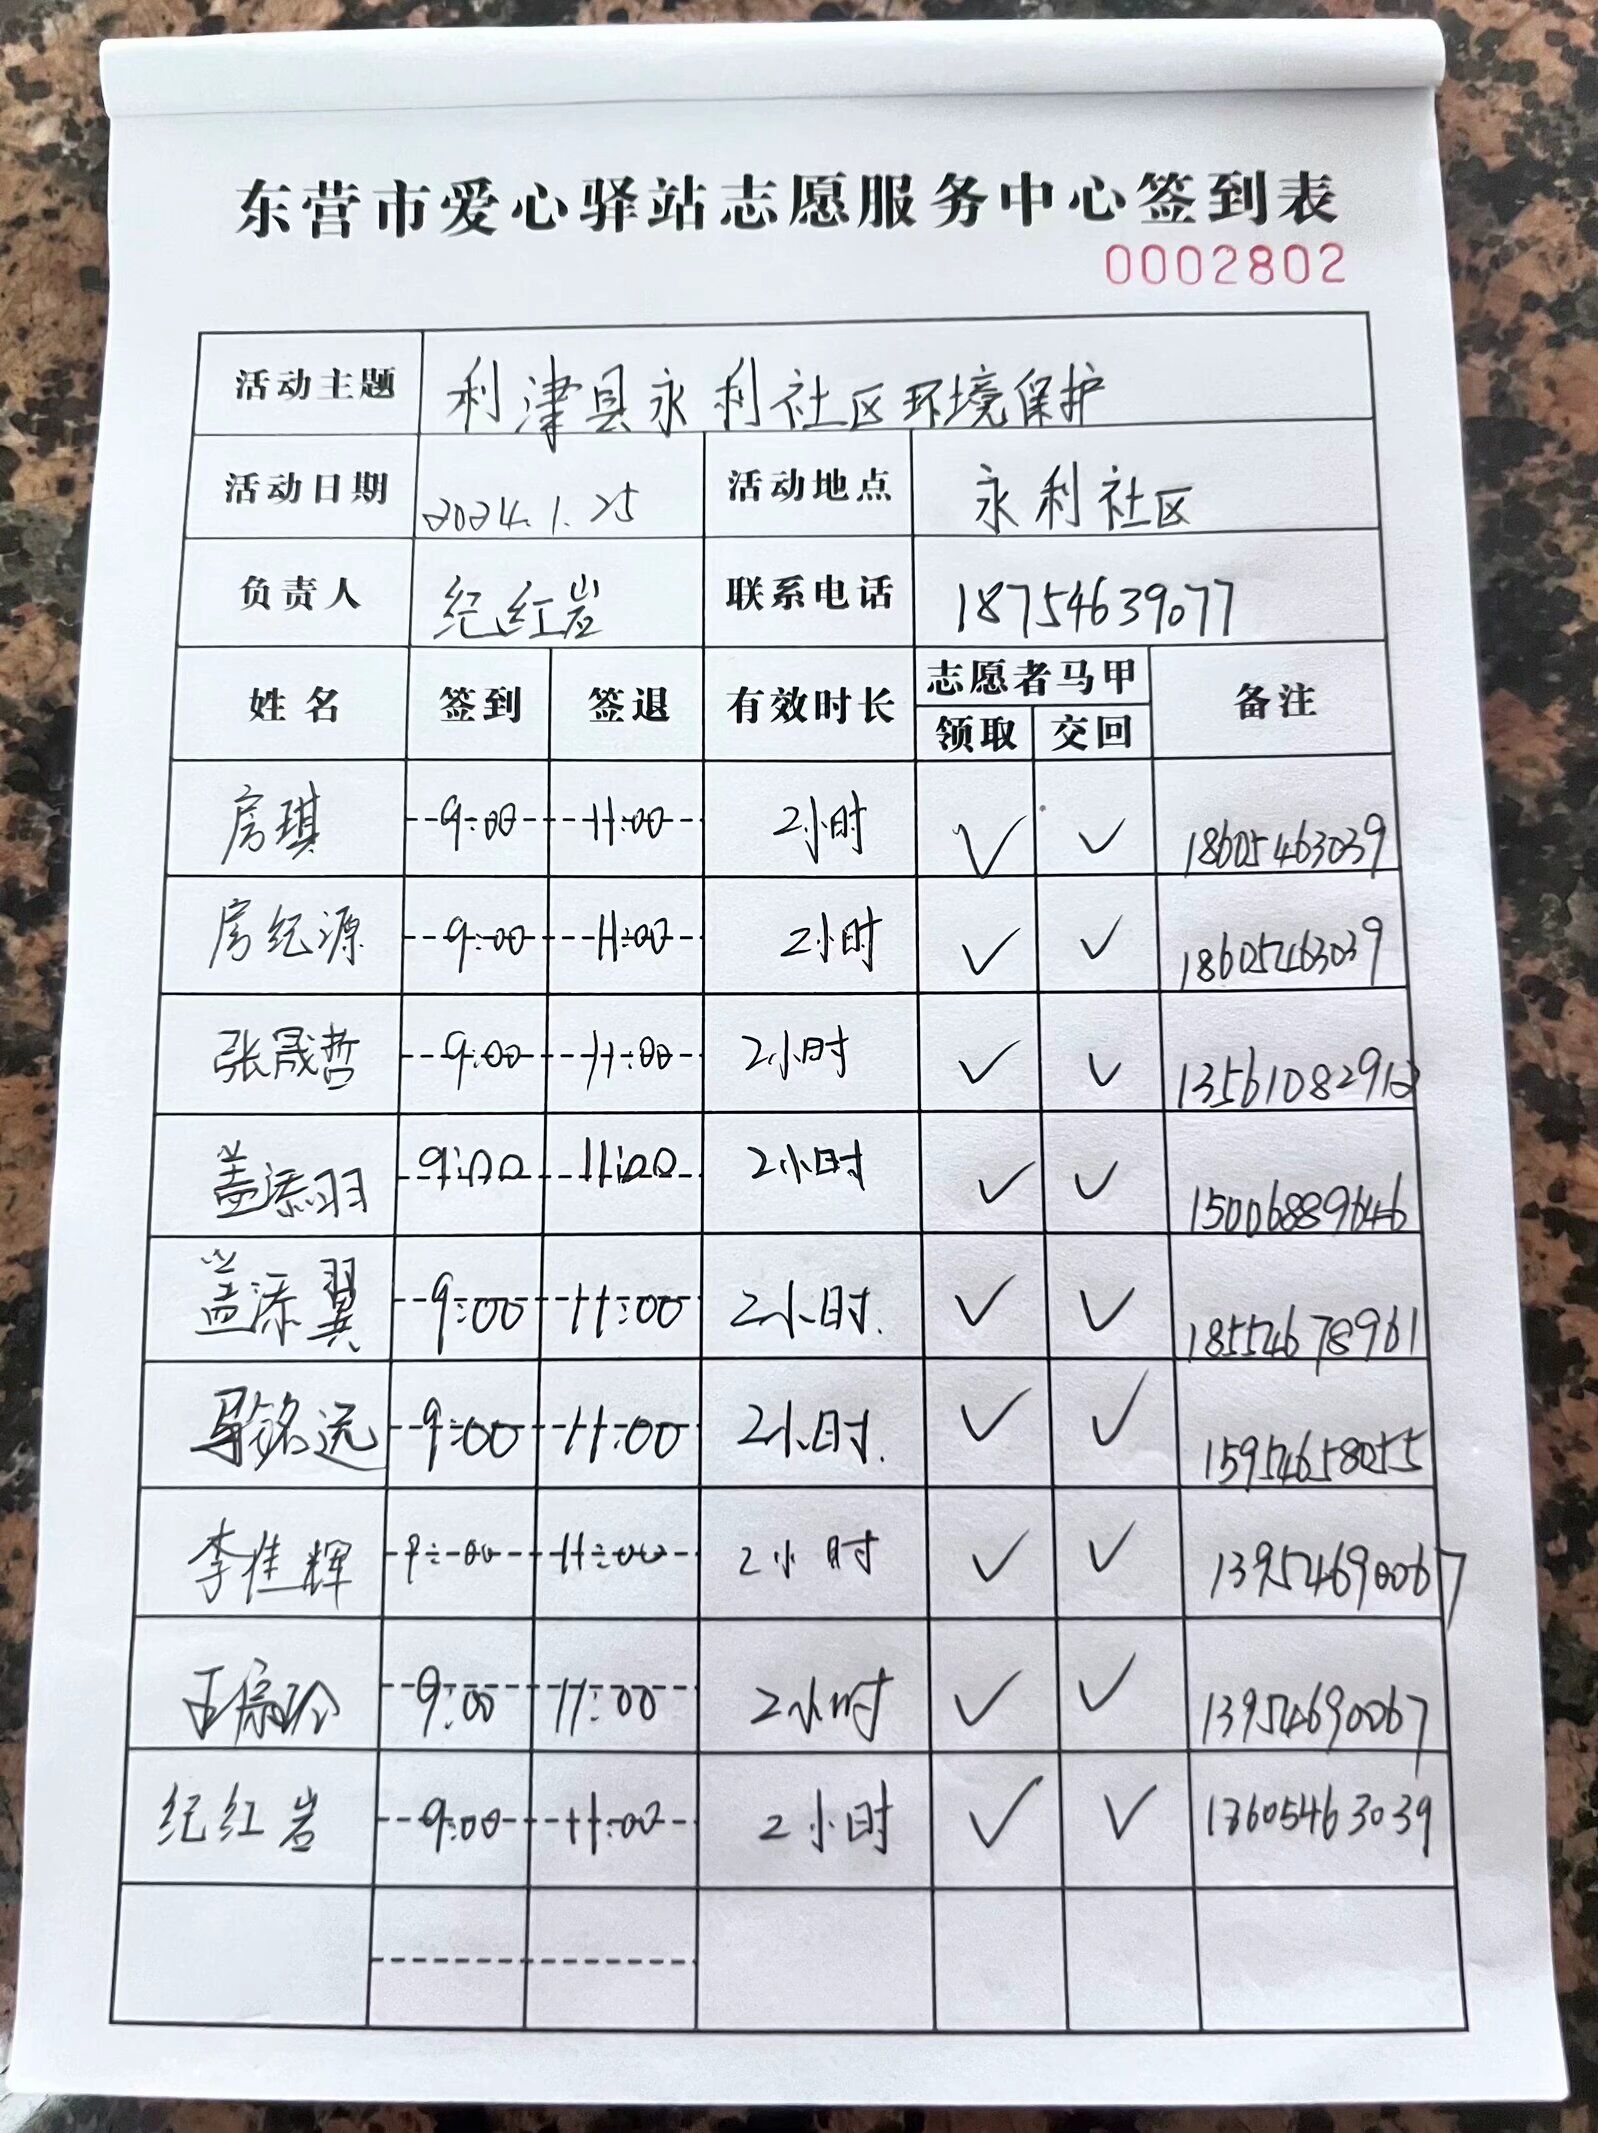 东营市爱心驿站志愿服务中心签到表
0002802
活动主题 利津县永利社区环境保护
活动日期 2024.1.25 活动地点 永利社区
负责人 纪红岩 联系电话 18754639077
姓名 签到 签退 有效时长 志愿者马甲 备注
领取 交回
房琪 9:00 11:00 2小时 ✓ ✓ 18605463039
房纪源 9:00 11:00 2小时 ✓ ✓ 18605463039
张晟哲 9:00 11:00 2小时 ✓ ✓
盖添羽 9:00 11:00 2小时 ✓ ✓ 15006889646
盖添翼 9:00 11:00 2小时. ✓ ✓ 18554678961
铭远 9:00 11:00 2小时. ✓ ✓ 15954658055
李佳辉 9:00 11:00 2小时 ✓ ✓ 13954690067
9:00 11:00 2小时 ✓ ✓ 13954690067
纪红岩 9:00 11:00 2小时 ✓ ✓ 18605463039